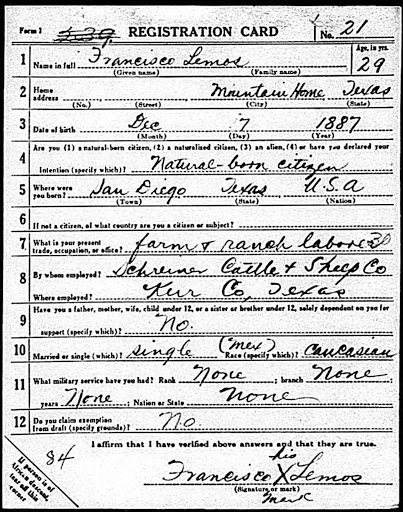 Form 1 539 REGISTRATION CARD No. 21
1 Name in full Francisco Lemos Age, in yrs. 29
(Given name) (Family name)
2 Home address Mountain Home Texas
(No.) (Street) (City) (State)
3 Date of birth Dec 7 1887
(Month) (Day) (Year)
4 Are you (1) a natural-born citizen, (2) a naturalized citizen, (3) an alien, (4) or have you declared your
intention (specify which)? Natural-born citizen
5 Where were you born? San Diego Texas U.S.A
(Town) (State) (Nation)
6 If not a citizen, of what country are you a citizen or subject?
7 What is your present trade, occupation, or office? farm & ranch laborer 30
8 By whom employed? Schreiner Cattle & Sheep Co
Where employed? Kerr Co, Texas
9 Have you a father, mother, wife, child under 12, or a sister or brother under 12, solely dependent on you for
support (specify which)? No.
10 Married or single (which)? single (mex) Race (specify which)? Caucasian
11 What military service have you had? Rank None ; branch None
years None ; Nation or State None
12 Do you claim exemption from draft (specify grounds)? No.
I affirm that I have verified above answers and that they are true.
84
his
Francisco X Lemos
(Signature or mark)
mark
If person is of African descent, tear off this corner